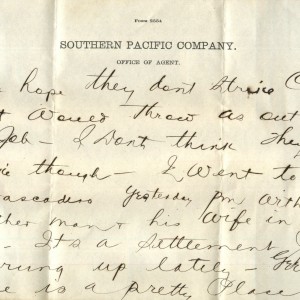 Form 2554
SOUTHERN PACIFIC COMPANY.
OFFICE OF AGENT.
hope they dont Strike
Would throw as out
Job - I Dont think They
though - I Went to
ascadero Yesterday pm With
ther man & his Wife in
- It's a Settlement
rung up lately -
e is a pretty Place